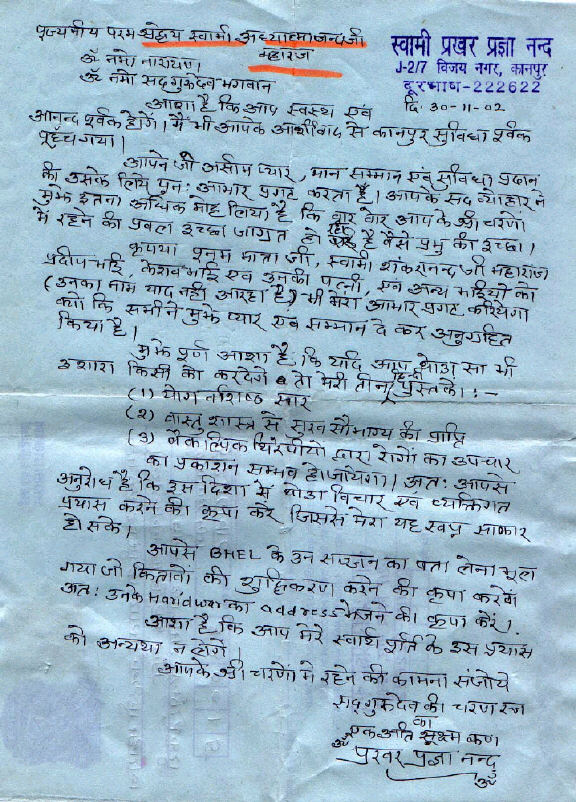 पूज्यनीय परम श्रद्धेय स्वामी अध्यात्मानन्द जी
महाराज
स्वामी प्रखर प्रज्ञा नन्द
J-2/7 विजय नगर, कानपुर
दूरभाष-222622
ॐ नमो नारायण।
ॐ नमो सदगुरुदेव भगवान
दि. 30-11-02
आशा है कि आप स्वस्थ एवं
आनन्द पूर्वक होगें। मैं भी आपके आशीर्वाद से कानपुर सुविधा पूर्वक
पहुँच गया।
आपने जो असीम प्यार, मान सम्मान एवं सुविधा प्रदान
की उसके लिये पुनः आभार प्रगट करता हूँ। आपके सद व्यवहार ने
मुझे इतना अधिक मोह लिया है कि बार बार आप के श्री चरणों
में रहने की प्रबल इच्छा जाग्रत हो रही है वैसे प्रभु की इच्छा।
कृपया पूनम माता जी, स्वामी शंकरानन्द जी महाराज
प्रदीप भाई, केशव भाई एवं उनकी पत्नी, एवं अन्य भाईयों को
(उनका नाम याद नहीं आरहा है) भी मेरा आभार प्रगट करियेगा
क्यों कि सभी ने मुझे प्यार एवं सम्मान दे कर अनुग्रहित
किया है।
मुझे पूर्ण आशा है कि यदि आप थोडा सा भी
इशारा किसी को करदेगें तो मेरी तीन हिन्दी पुस्तकें: -
(1) योग वशिष्ठ सार
(2) वास्तु शास्त्र से सुख सौभाग्य की प्राप्ति
(3) वैकल्पिक थिरेपीयों द्वारा रोगों का उपचार
का प्रकाशन सम्भव हो जायेगा। अतः आपसे
अनुरोध है कि इस दिशा में थोडा विचार एवं व्यक्तिगत
प्रयास करने की कृपा करें जिससे मेरा यह स्वप्न साकार
हो सके।
आपसे BHEL के उन सज्जन का पता लेना भूल
गया जो किताबों की शुद्धिकरण करने की कृपा करेगें
अतः उनके Haridwar का address भेजने की कृपा करें।
आशा है कि आप मेरे स्वार्थ पूर्ति के इस प्रयास
को अन्यथा न लेगें।
आपके श्री चरणों में रहने की कामना संजोये
सद्गुरुदेव की चरण रज
का
एक अति सूक्ष्म कण
ॐ प्रखर प्रज्ञा नन्द
ॐ